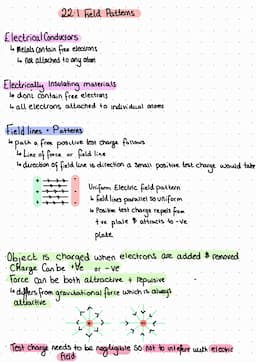 22.1 Field Patterns
Electrical Conductors
↳ Metals contain free electrons
↳ not attached to any atom
Electrically Insulating materials
↳ dont contain free electrons
↳ all electrons attached to individual atoms
Field lines + Patterns
↳ path a free positive test charge follows
↳ Line of force or field line
↳ direction of field line is direction a small positive test charge would take
Uniform Electric field pattern
↳ field lines parallel so uniform
↳ Positive test charge repels from
+ve plate & attracts to -ve
plate.
Object is charged when electrons are added & removed
Charge can be +ve or -ve
Force can be both attractive + repulsive
↳ differs from gravitational force which is always
attractive
Test charge needs to be negligible so not to interfere with electric
field